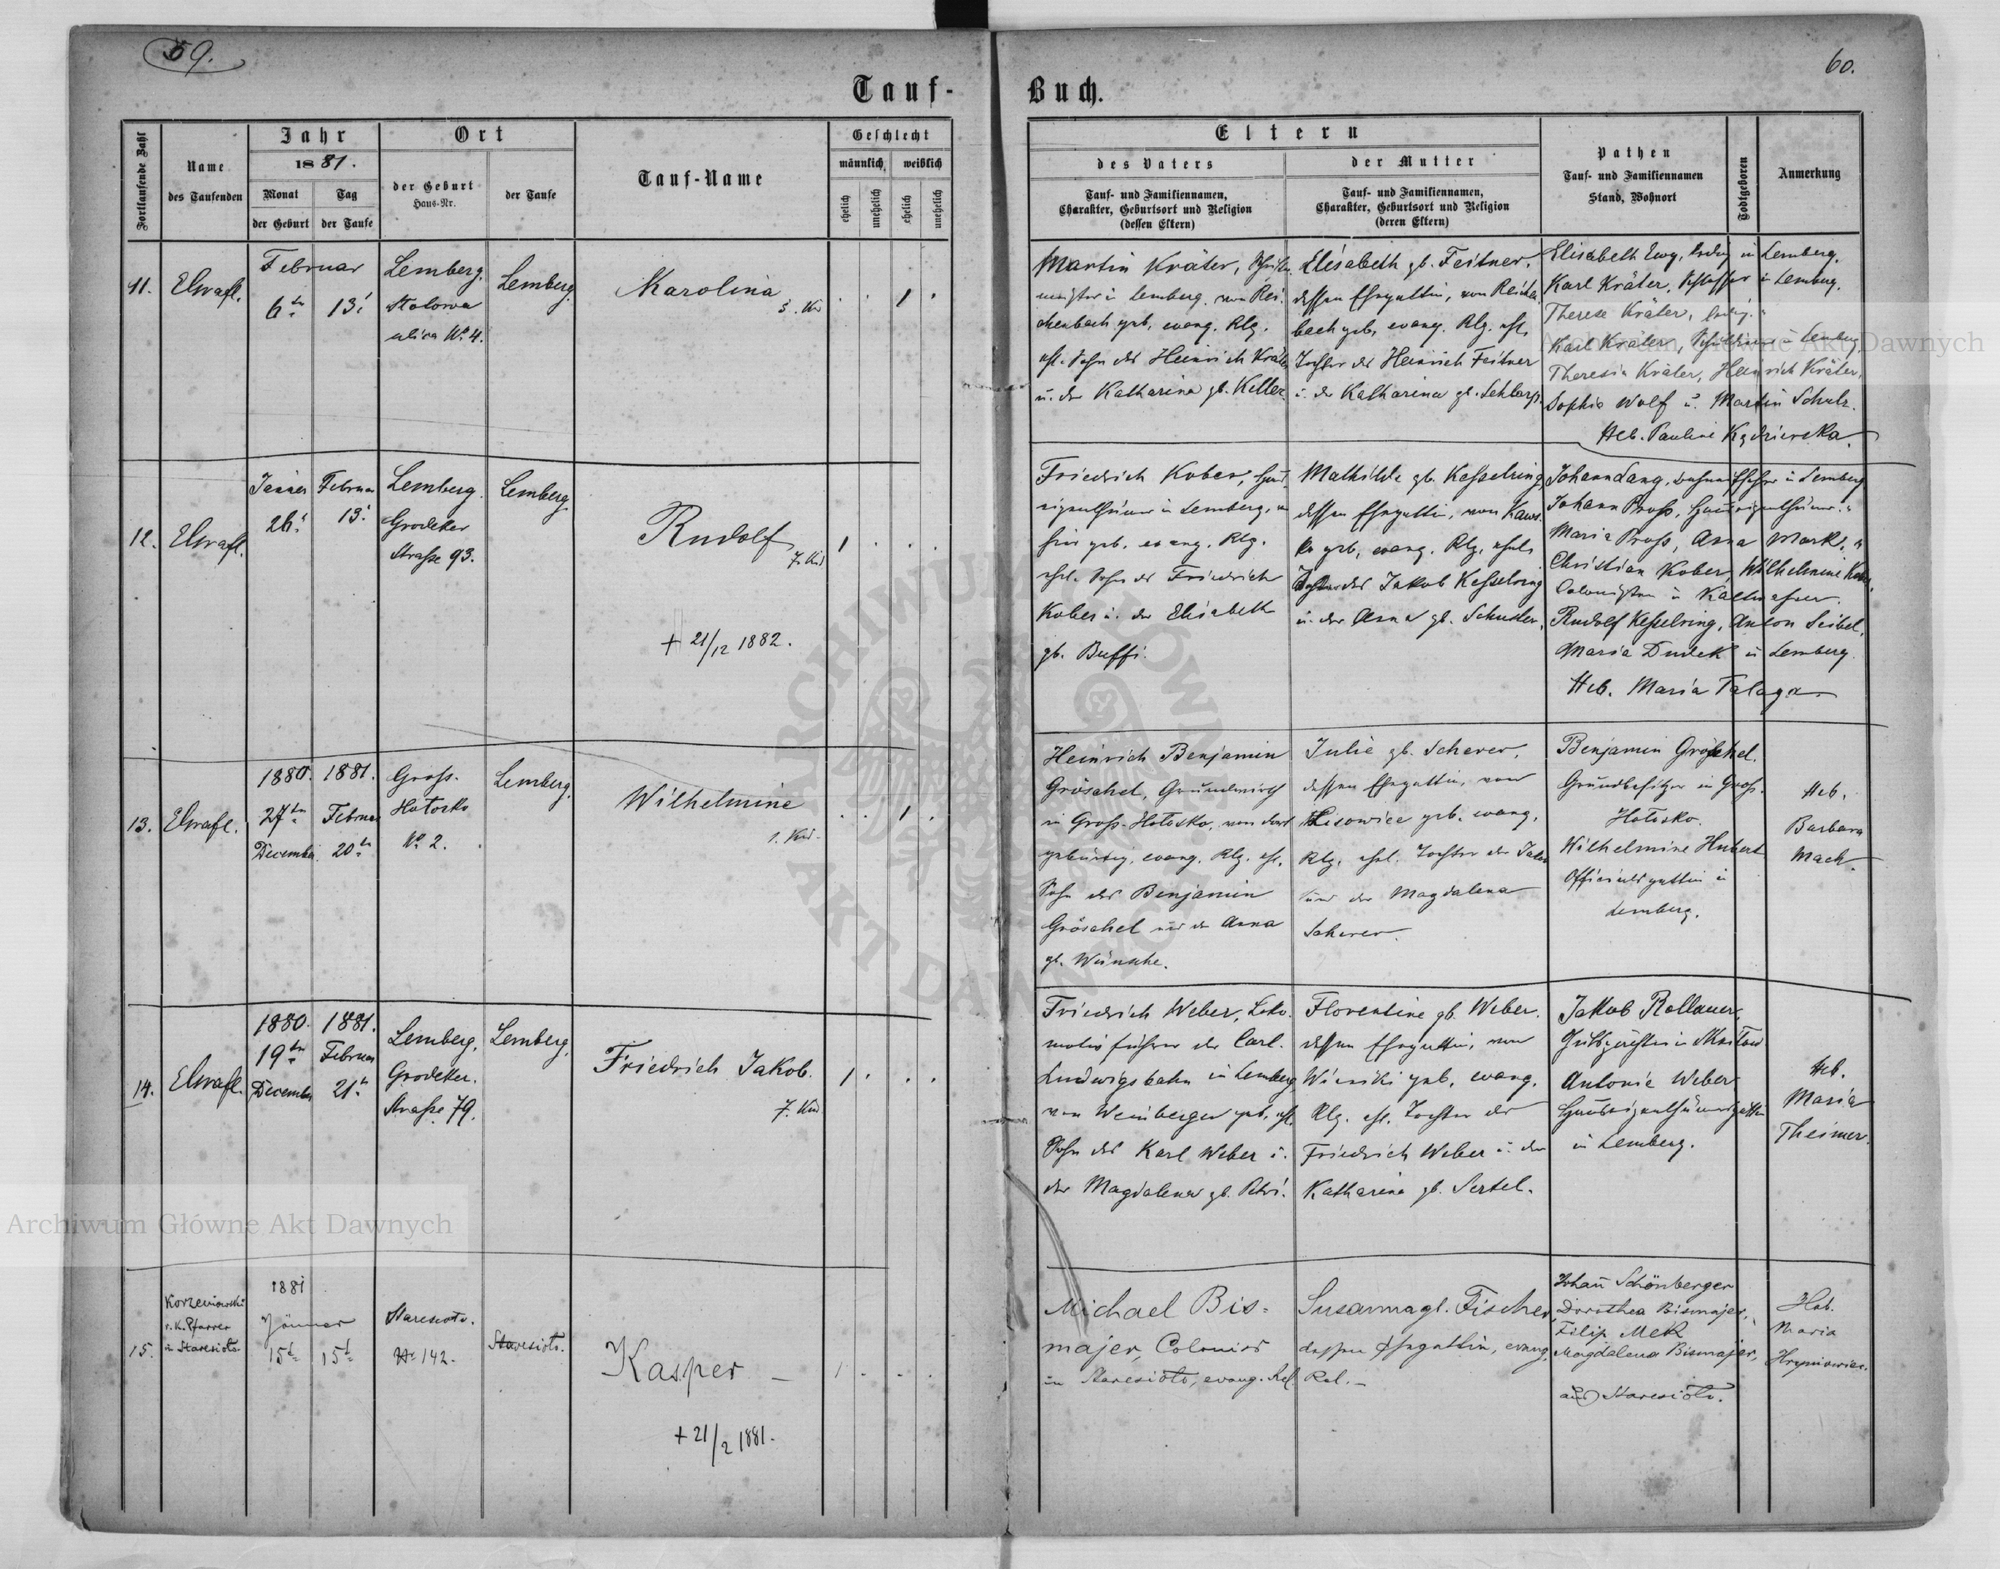 59.
60.
Tauf-Buch.
Fortlaufende Zahl
Name
des Taufenden
Jahr
1881.
Monat
der Geburt
Tag
der Taufe
Ort
der Geburt
Haus-Nr.
der Taufe
Tauf-Name
Geschlecht
männlich
weiblich
ehelich
unehelich
ehelich
unehelich
Eltern
des Vaters
Tauf- und Familiennamen,
Charakter, Geburtsort und Religion
(dessen Eltern)
der Mutter
Tauf- und Familiennamen,
Charakter, Geburtsort und Religion
(deren Eltern)
Pathen
Tauf- und Familiennamen
Stand, Wohnort
Todtgeboren
Anmerkung
11.
Februar
6
13
Lemberg.
ulica No. 4.
Lemberg.
Karolina
1
Martin Kräter,
in Lemberg, von Rei-
chenbach geb, evang. Rlg.
ehl. Sohn des Heinrich Kräter
u. der Katharina gb. Keller
Elisabeth gb. Feitner,
dessen Ehegattin, von Reichen
bach geb, evang. Rlg. ehl.
Tochter des Heinrich Feitner
u. der Katharina gb.
Elisabeth ledig in Lemberg.
Karl Kräter, Schlosser in Lemberg.
Therese Kräter, ledig "
Karl Kräter, in Lemberg
Theresia Kräter, Heinrich Kräter,
Sophie Wolf u. Martin Schulz.
Heb. Pauline
12.
Jänner
26
Februar
13
Lemberg.
Grodeker
Straße 93.
Lemberg.
Rudolf
7. Kind
+ 21/12 1882.
1
Friedrich Kober, Haus-
eigenthümer in Lemberg, in
geb. evang. Rlg.
ehel. Sohn des Friedrich
Kober u. der Elisabeth
gb. Buffi.
Mathilde gb. Kesselring,
dessen Ehegattin, von
geb, evang. Rlg, ehel.
Tochter des Jakob Kesselring
u. der Anna gb. Schuster.
Johann Lang, in Lemberg
Johann Proß, Hauseigenthümer "
Maria Proß, Anna Mark, "
Christian Kober, Wilhelmine Kober,
Colonisten in
Rudolf Kesselring, Anton Seibel,
Maria Dudek in Lemberg.
Heb. Maria Talaga
13.
1880.
27
December
1881.
Februar
20
Gross-
Hołosko
No. 2.
Lemberg.
Wilhelmine
1. Kind
1
Heinrich Benjamin
Gröschel, Grundwirth
in Groß-Hołosko, von dort
gebürtig, evang. Rlg. ehl.
Sohn des Benjamin
Gröschel und der Anna
gb. Wünsche.
Julie gb. Scherer,
dessen Ehegattin, von
Lisowice geb. evang.
Rlg. ehel. Tochter des
und der Magdalena
Scherer.
Benjamin Gröschel.
Grundbesitzer in Groß-
Hołosko.
Wilhelmine Hubert
Officialsgattin in
Lemberg.
Heb.
Barbara
Mach
14.
1880.
19
December
1881.
Februar
21
Lemberg,
Grodeker-
Straße 79.
Lemberg.
Friedrich Jakob.
7. Kind
1
Friedrich Weber, Loko-
motivführer der Carl-
Ludwigsbahn in Lemberg
von Weinbergen geb, ehl.
Sohn des Karl Weber u.
der Magdalena gb. Petri.
Florentine gb. Weber.
dessen Ehegattin, von
geb, evang.
Rlg. ehl. Tochter des
Friedrich Weber u. der
Katharina gb. Sertel.
Jakob Rollauer,
Gutspächter in
Antonie Weber
Hauseigenthümersgattin
in Lemberg.
Heb.
Maria
Theimer.
15.
Korzeniowski
r. k. Pfarrer
in Staresioło
1881
Jänner
15
15
Staresioło.
No 142.
Staresioło.
Kasper –
+ 21/2 1881.
1
Michael Bis-
majer, Colonist
in Staresioło, evang. Rel.
Susanna gb. Fischer,
dessen Ehegattin, evang.
Rel. –
Johann Schönberger
Dorothea Bismajer,
Filip Mek
Magdalena Bismajer,
aus Staresioło.
Heb.
Maria
Archiwum Główne Akt Dawnych
Archiwum Główne Akt Dawnych
ARCHIWUM GŁÓWNE AKT DAWNYCH